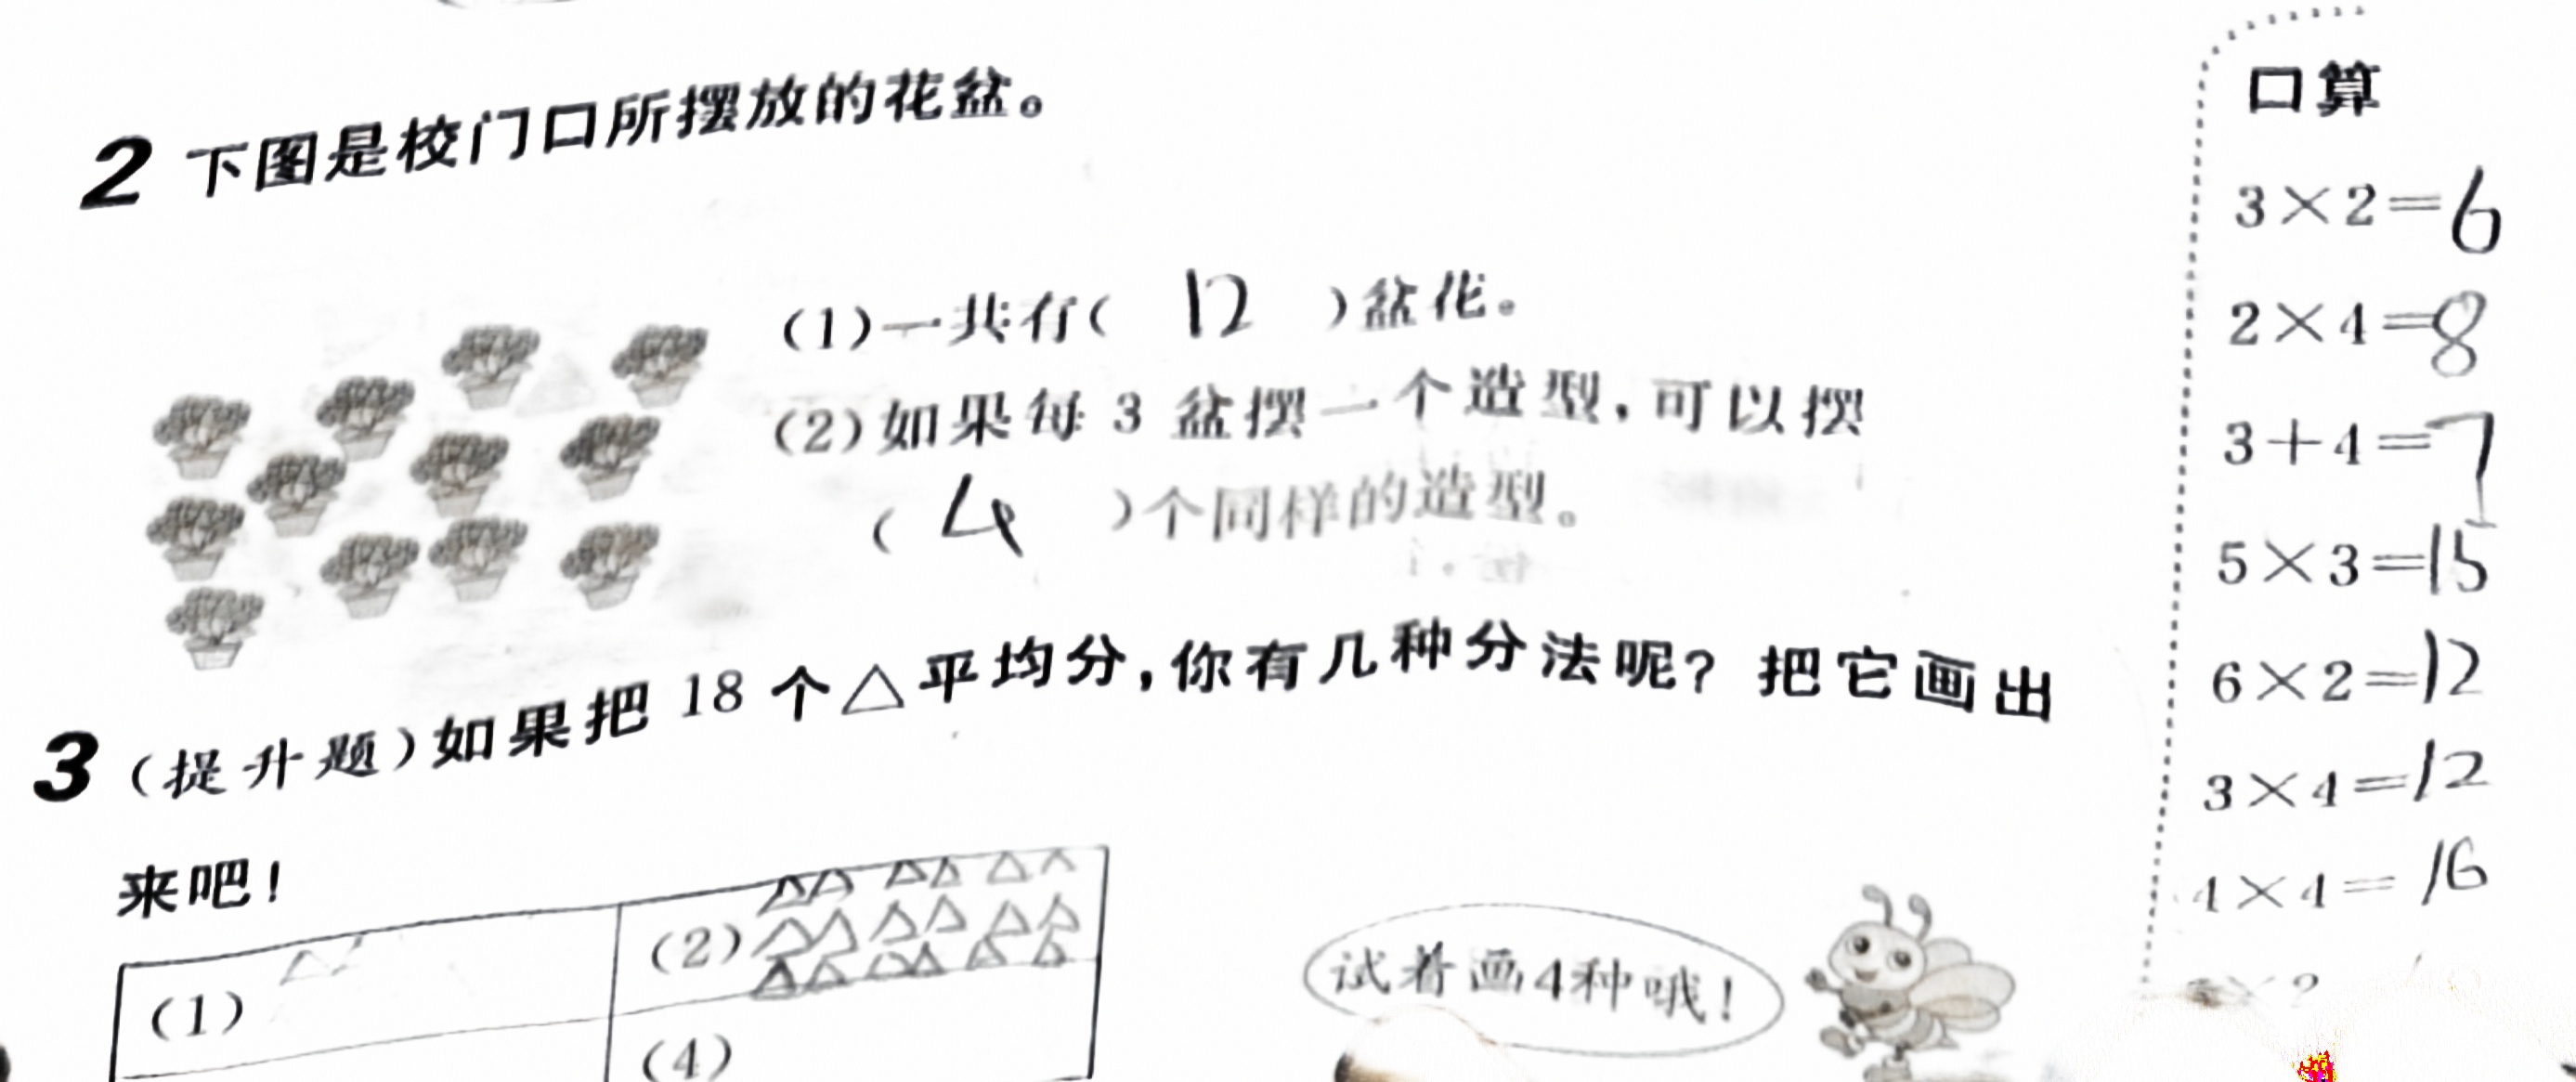 2 下图是校门口所摆放的花盆。
(1)一共有( 12 )盆花。
(2)如果每 3 盆摆一个造型,可以摆
( 4 )个同样的造型。
3 (提升题)如果把 18 个△平均分,你有几种分法呢? 把它画出
来吧!
(1)
(2)
(4)
试着画4种哦!
口算
3×2=6
2×4=8
3+4=7
5×3=15
6×2=12
3×4=12
4×4=16